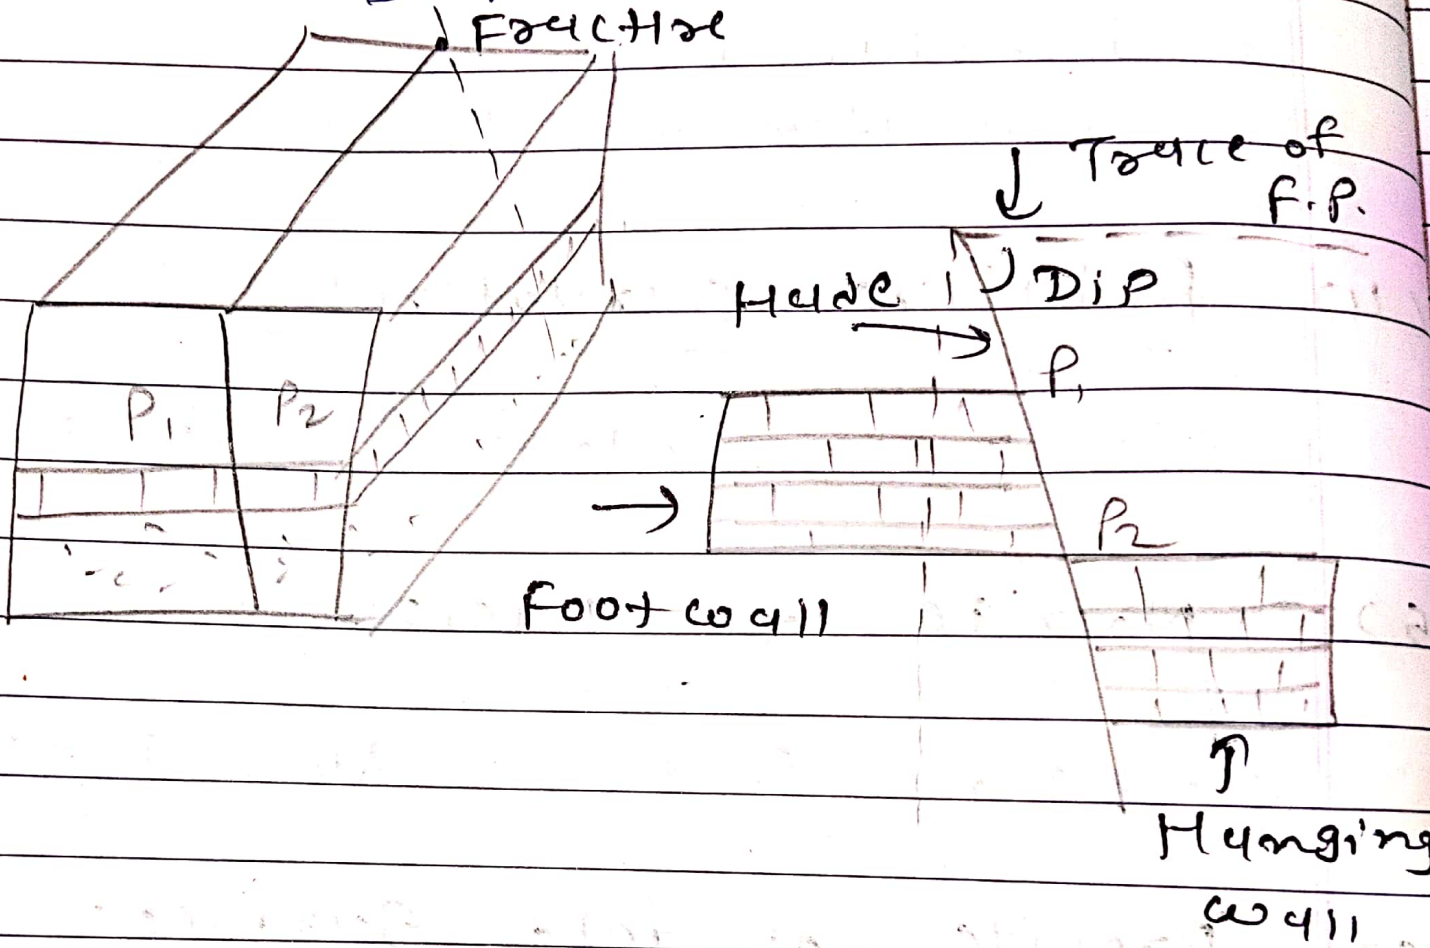 Fracture
Trace of
F.P.
Hade
Dip
P1
P2
P1
P2
Foot wall
Hanging
wall